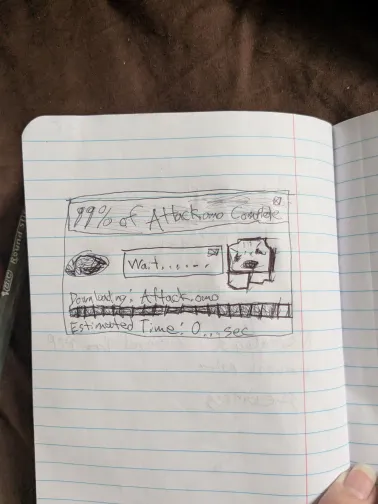 99% of Attack.omo Complete
Wait......
Downloading: Attack.omo
Estimated Time: 0...sec